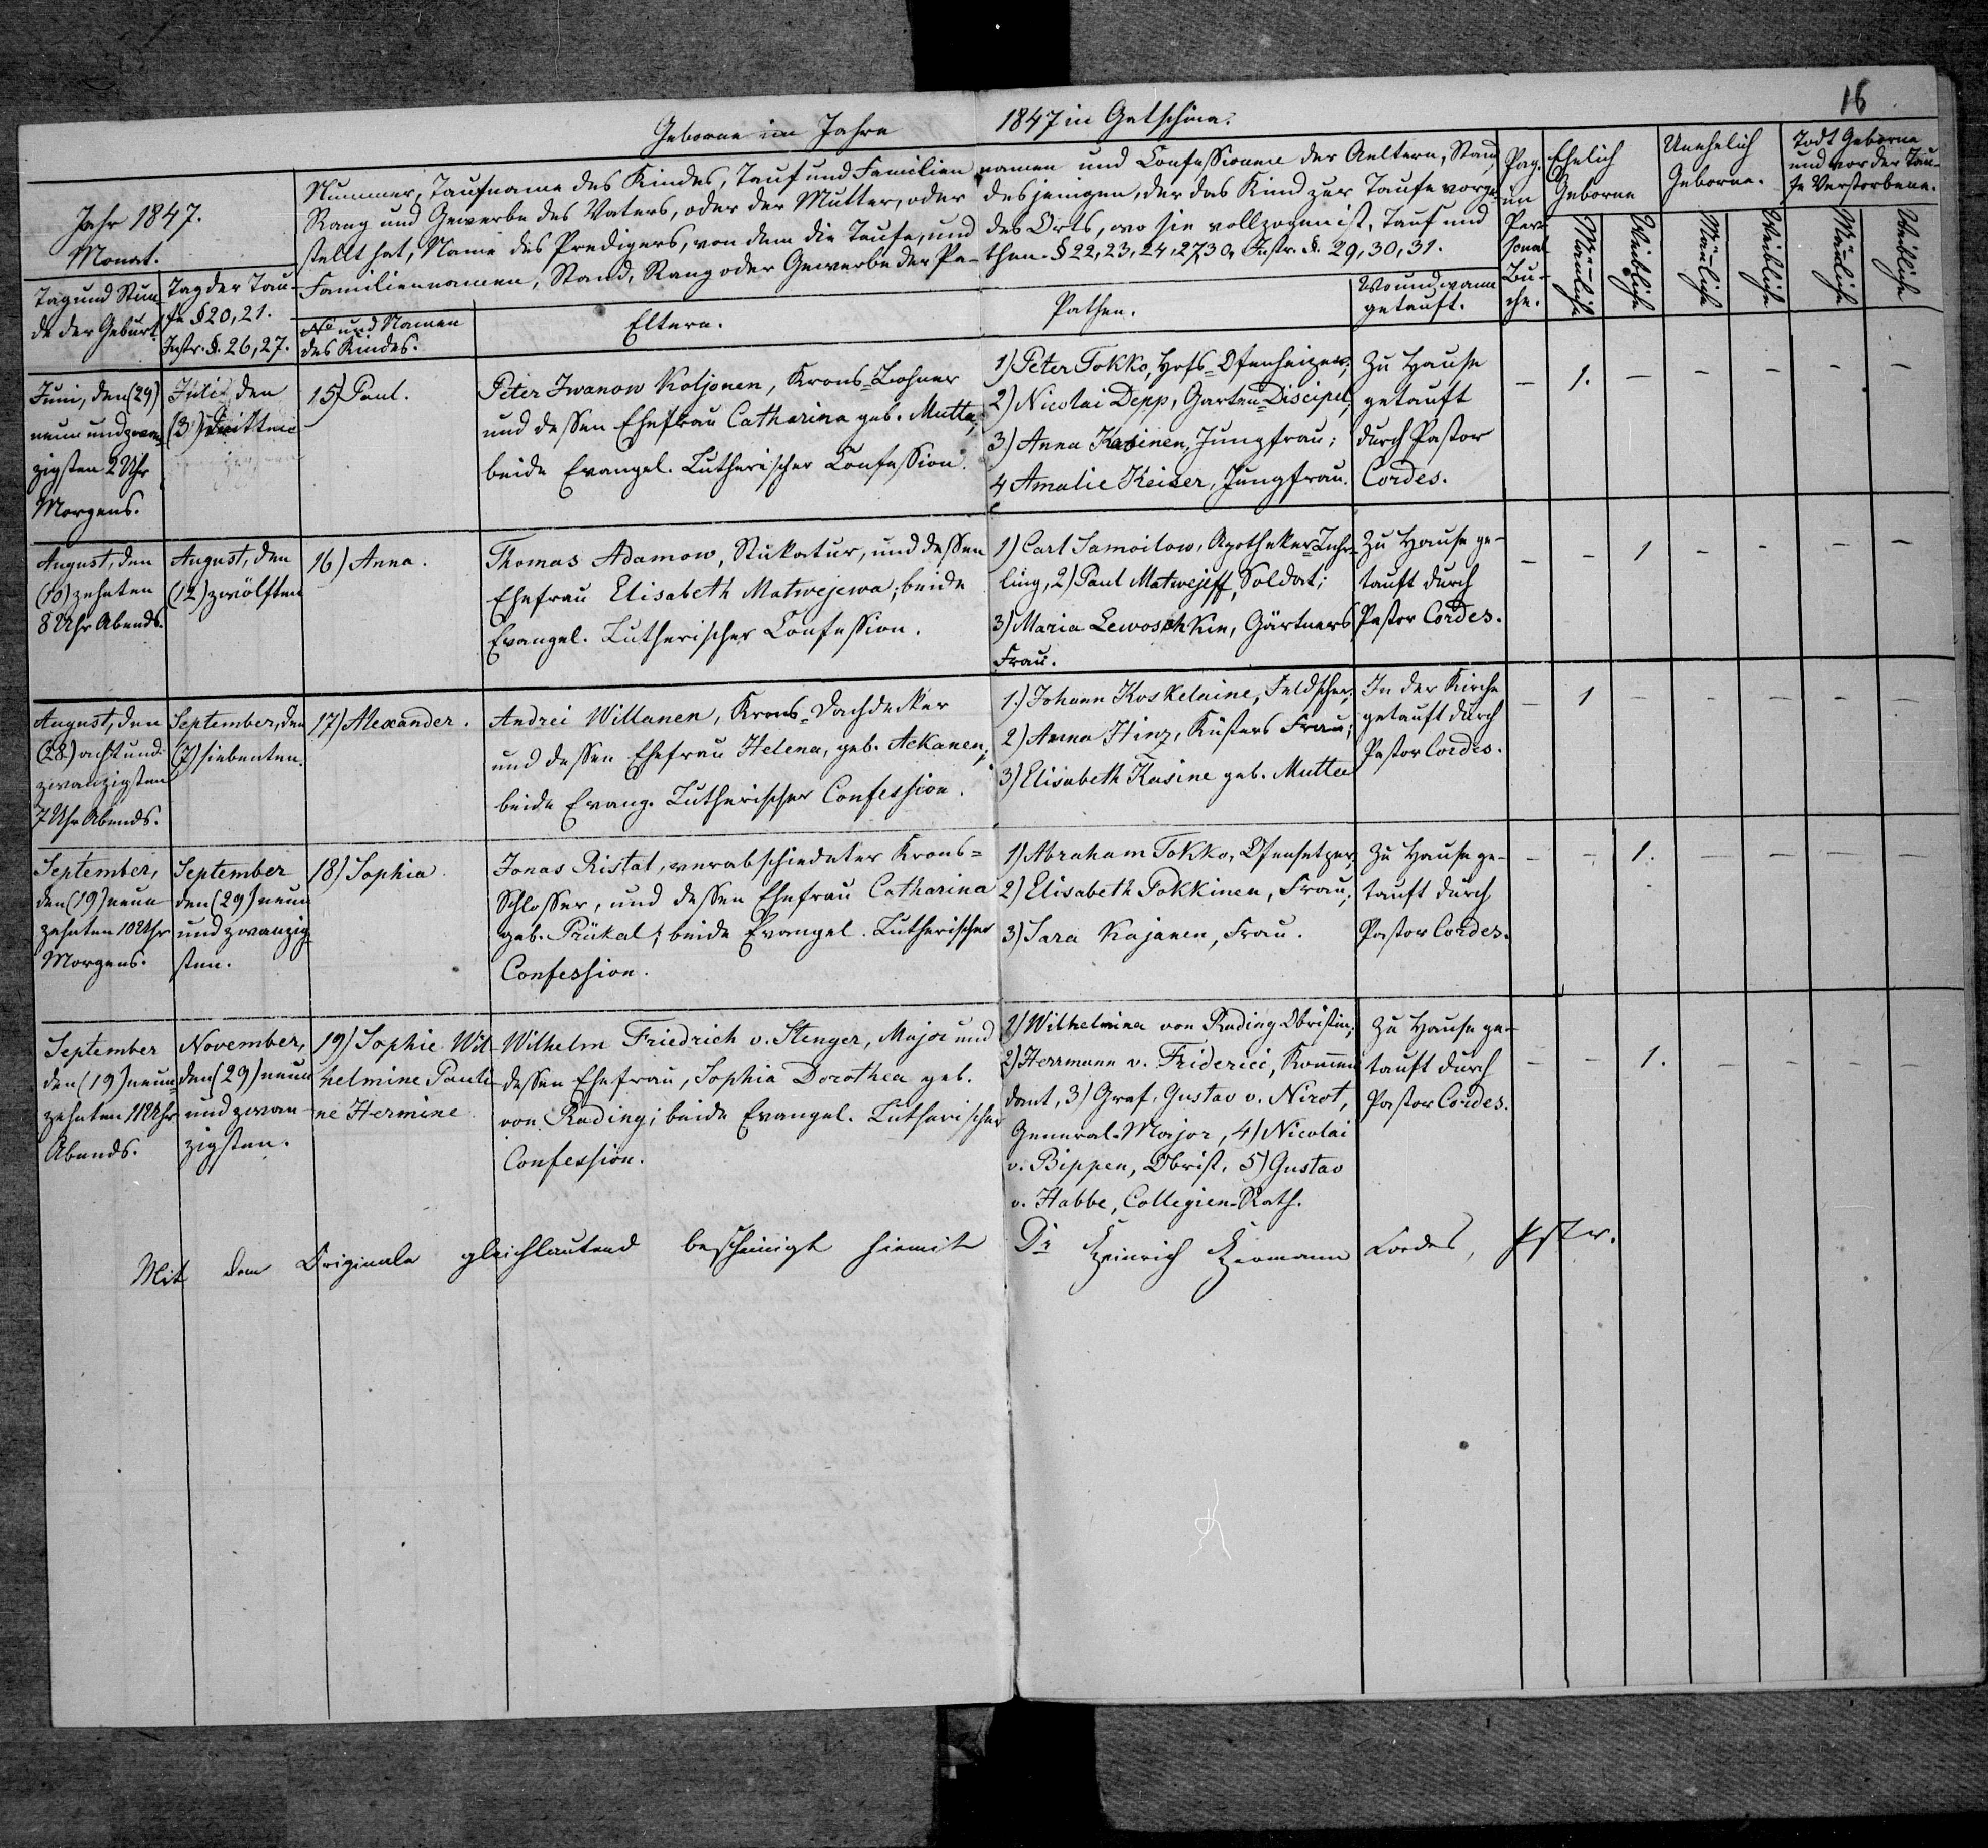 16
Geborne im Jahre 1847 in Gatschina.
Jahr 1847.
Monat.
Tag und Stun-
de der Geburt.
Tag der Tau-
fe § 20, 21.
Instr. §. 26, 27.
Nummer, Taufname des Kindes, Tauf und Familiennamen und Confessionen der Aeltern, Stand,
Rang und Gewerbe des Vaters, oder der Mutter, oder desjenigen, der das Kind zur Taufe vorge-
stellt hat, Name des Predigers, von dem die Taufe, und des Orts, wo sie vollzogen ist, Tauf und
Familiennamen, Stand, Rang oder Gewerbe der Pa-then. § 22, 23, 24, 27, 30, Instr. §. 29, 30, 31.
No und Namen
des Kindes.
Eltern.
Pathen.
Wo und wann
getauft.
Pag.
im
Per-
sonal
Bu-
che.
Ehelich
Geborne
Unehelich
Geborne.
Todt Geborne
und vor der Tau-
fe Verstorbene.
Mänliche
Weibliche
Mänliche
Weibliche
Mänliche
Weibliche
Juni, den (29)
neun und zwan-
zigsten 2 Uhr
Morgens.
Juli, den
(3) dritten
15) Paul.
Peter Iwanow Koljonen, Krons-Bohner
und dessen Ehefrau Catharina geb. Mutta;
beide Evangel. Lutherischer Confession.
1) Peter Tokko, Hofs-Ofenheizer;
2) Nicolai Depp, Garten-Discipel;
3) Anna Kasinen, Jungfrau;
4 Amalie Keiser, Jungfrau.
Zu Hause
getauft
durch Pastor
Cordes.
– 1. – – – – –
August, den
(10) zehnten
8 Uhr Abends.
August, den
(12) zwölften
16) Anna.
Thomas Adamow, Stukatur, und dessen
Ehefrau Elisabeth Matwejewa; beide
Evangel. Lutherischer Confession.
1) Carl Samoilow, Apotheker-Lehr-
ling, 2) Paul Matwejeff, Soldat;
3) Maria Lewoschkin, Gärtners
Frau.
Zu Hause ge-
tauft durch
Pastor Cordes.
– – 1 – – – –
August, den
(28) acht und
zwanzigsten
7 Uhr Abends.
September, den
(7) siebenten.
17) Alexander.
Andrei Willanen, Krons-Dachdecker
und dessen Ehefrau Helena, geb. Ackanen;
beide Evang. Lutherischer Confession.
1.) Johann Koskelaine, Feldscher;
2) Anna Hinz, Küsters Frau;
3) Elisabeth Kasine geb. Muttee
In der Kirche
getauft durch
Pastor Cordes.
– 1 – – – – –
September,
den (19) neun-
zehnten 10 Uhr
Morgens.
September
den (29) neun
und zwanzig
sten.
18) Sophia
Jonas Ristat, verabschiedeter Krons-
Schlosser, und dessen Ehefrau Catharina
geb. Prükal; beide Evangel. Lutherischer
Confession.
1) Abraham Tokko, Ofensetzer,
2) Elisabeth Pokkinen, Frau;
3) Sara Kajanen, Frau.
Zu Hause ge-
tauft durch
Pastor Cordes.
– – 1. – – – –
September
den (19) neun-
zehnten 11 Uhr
Abends.
November,
den (29) neun
und zwan-
zigsten.
19) Sophie Wil-
helmine Pauli-
ne Hermine
Wilhelm Friedrich v. Stenger, Major und
dessen Ehefrau, Sophia Dorothea geb.
von Rading; beide Evangel. Lutherischer
Confession.
1) Wilhelmina von Rading Obristin;
2) Herrmann v. Friderici, Kommen-
dant, 3) Graf, Gustav v. Nirot,
General-Major, 4) Nicolai
v. Bippen, Obrist, 5) Gustav
v. Habbe, Collegien-Rath.
Zu Hause ge-
tauft durch
Pastor Cordes.
– – 1. – – – –
Mit dem Originale gleichlautend bescheinigt hiemit Dr Heinrich Hermann Cordes, Pstr.